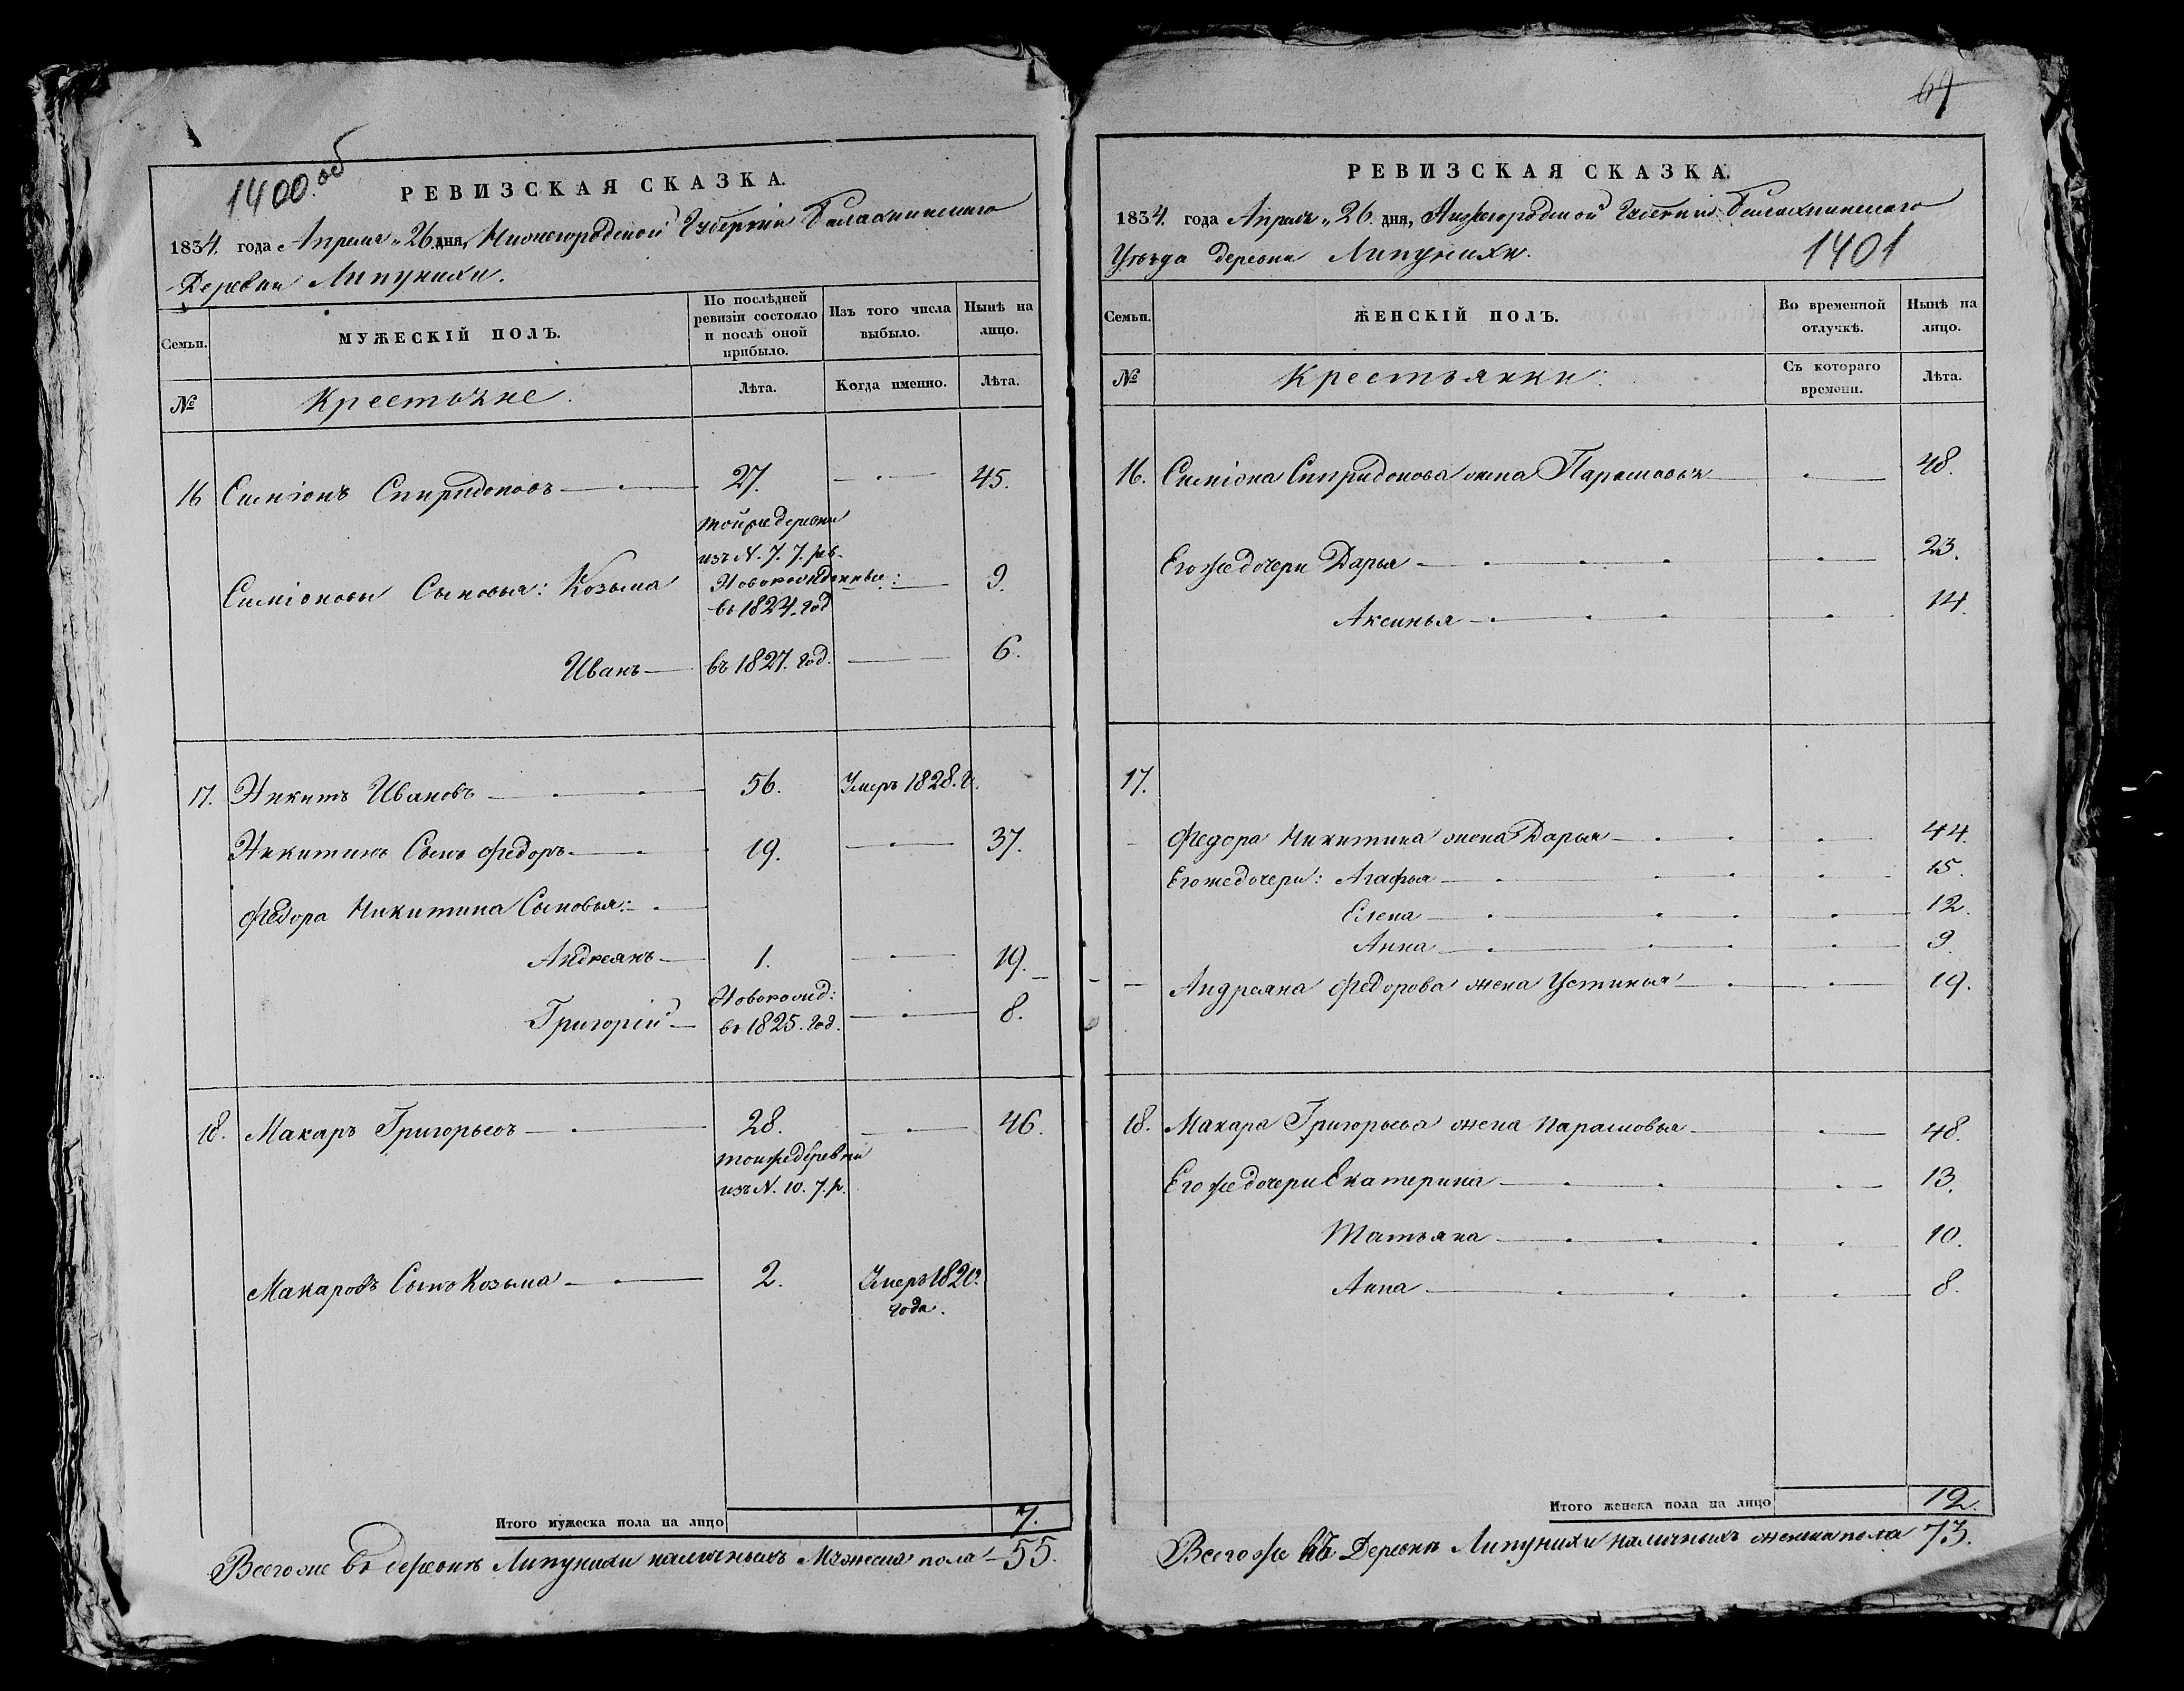 1400 об
РЕВИЗСКАЯ СКАЗКА.
1834. года Апреля „ 26. дня, Нижегородской Губернiи Балахнинскаго
Деревни Липунихи.
Семьи.
МУЖЕСКIЙ ПОЛЪ.
По послѣдней ревизiи состояло и послѣ оной прибыло.
Изъ того числа выбыло.
Нынѣ на лицо.
№
Крестьяне.
Лѣта.
Когда именно.
Лѣта.
16 Симiонъ Спиридоновъ 27. 45.
тойже деревни
изъ N. 7. 7. рв.
Симiоновы Сыновья: Козьма Новорожденные: 9.
въ 1824. год
Иванъ въ 1827. год. 6.
17. Никита Ивановъ 56. Умеръ 1828. г.
Никитинъ Сынъ Федоръ 19. 37.
Федора Никитина Сыновья:
Андреянъ 1. 19.
Григорiй Новорожд: 8.
въ 1825. год.
18. Макаръ Григорьевъ 28. 46.
тойже деревни
изъ N. 10. 7. р.
Макаровъ Сынъ Козьма 2. Умеръ 1820.
года.
Итого мужеска пола на лицо 7.
Всегоже въ деревнѣ Липунихи наличныхъ Мужеска пола 55.
64
РЕВИЗСКАЯ СКАЗКА.
1834. года Апреля „ 26. дня, Нижегородской Губернiи Балахнинскаго
Уѣзда деревни Липунихи. 1401
Семьи.
ЖЕНСКIЙ ПОЛЪ.
Во временной отлучкѣ.
Нынѣ на лицо.
№
Крестьянки:
Съ котораго времени.
Лѣта.
16. Симiона Спиридонова жена Парасковья 48.
Егоже дочери Дарья 23.
Аксинья 14.
17.
Федора Никитина жена Дарья 44.
Егоже дочери: Агафья 15.
Елена 12.
Анна 9.
Андреяна Федорова жена Устинья 19.
18. Макара Григорьева жена Парасковья 48.
Егоже дочери Екатерина 13.
Татьяна 10.
Анна 8.
Итого женска пола на лицо 12.
Всегоже въ Деревнѣ Липунихи наличныхъ женска пола 73.